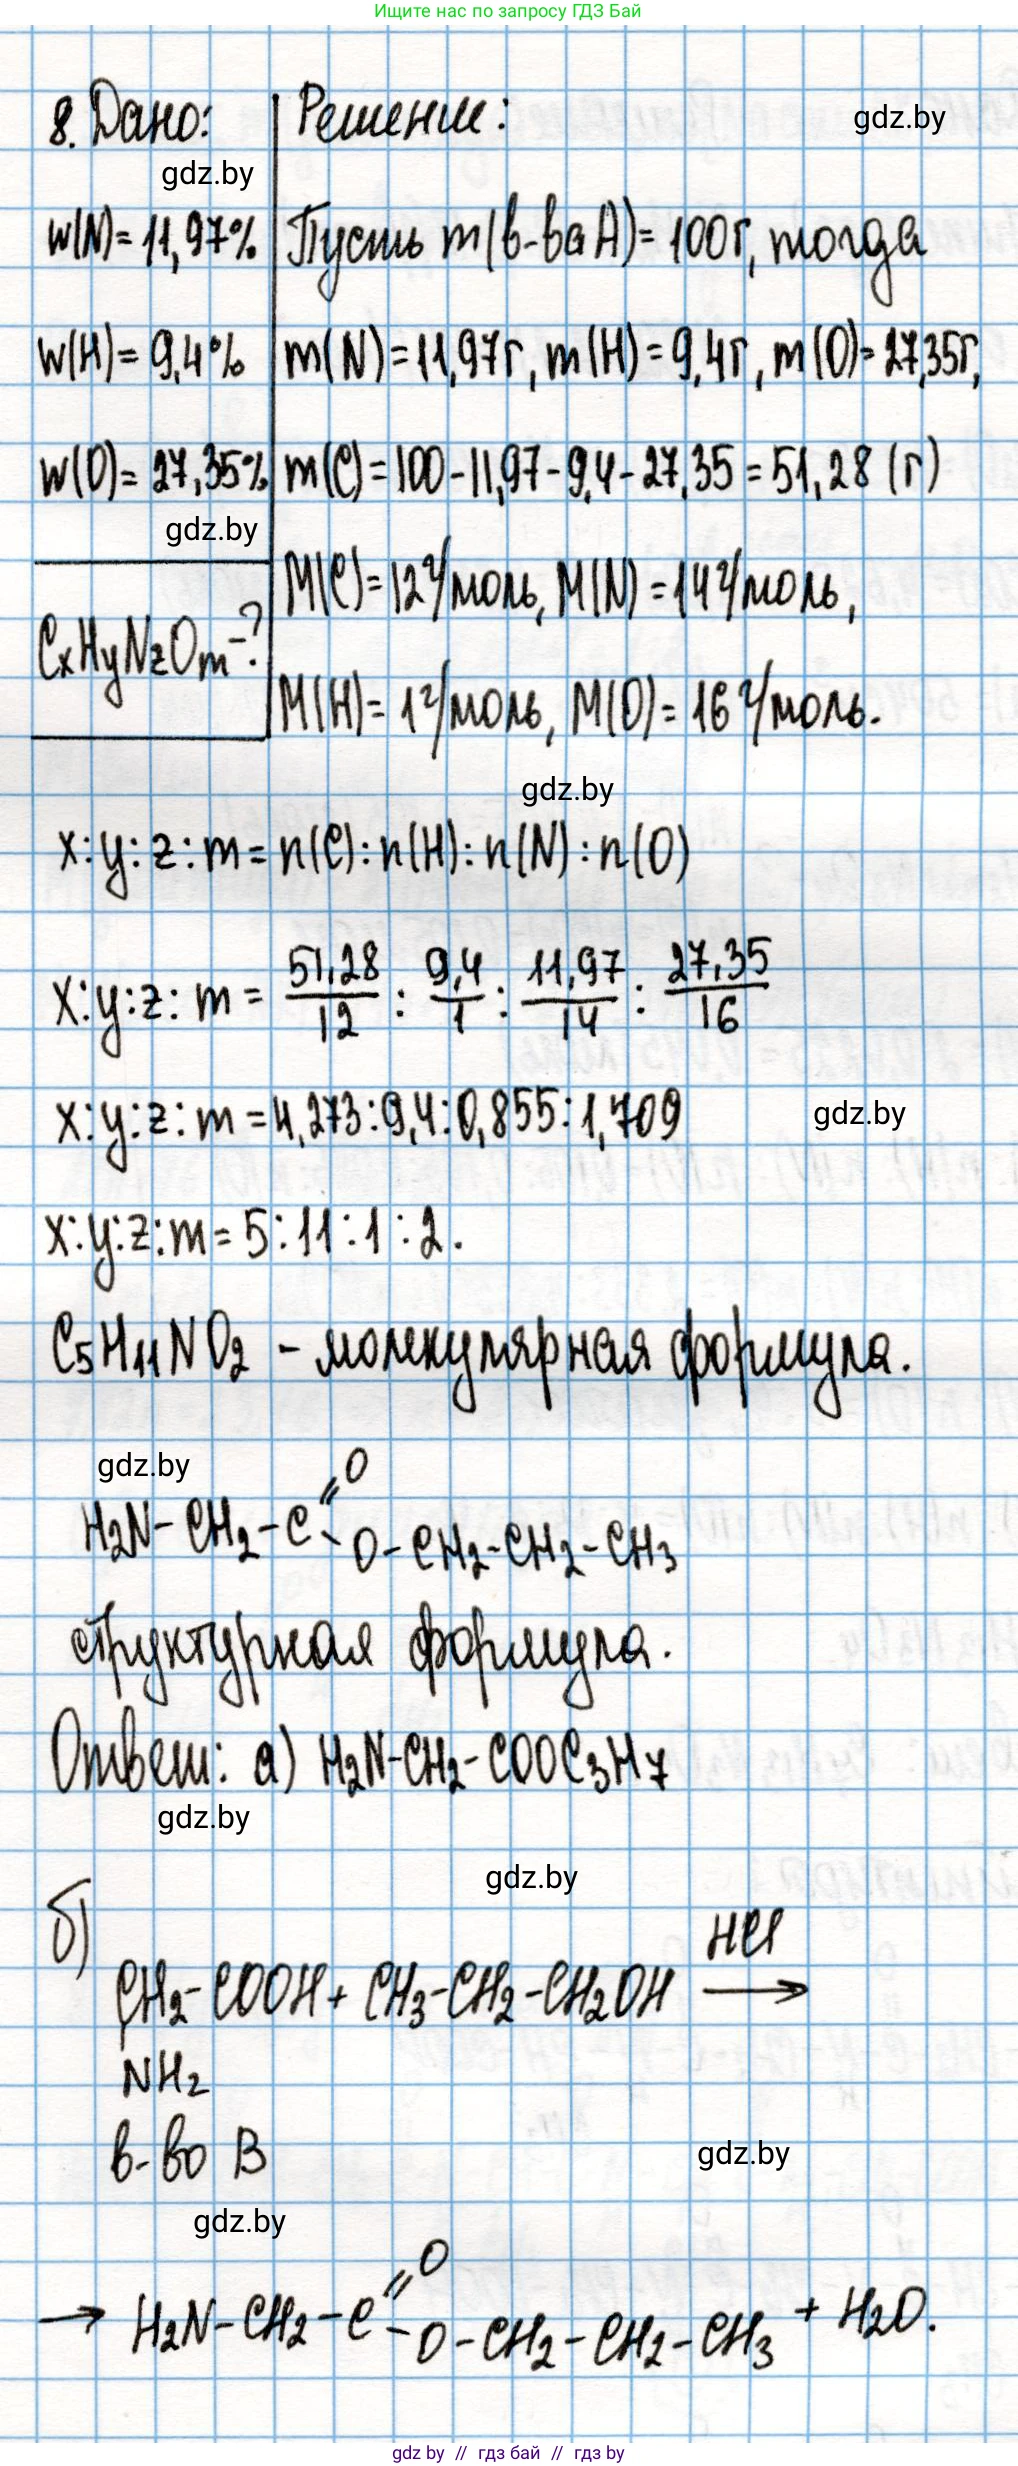 Ищите нас по запросу ГДЗ Бай
8. Дано: Решение:
gdz.by
gdz.by
w(N)= 11,97% Пусть m(в-ва А)= 100г, тогда
w(H)= 9,4% m(N)=11,97г, m(H)=9,4г, m(O)=27,35г,
w(O)= 27,35% m(C)=100-11,97-9,4-27,35=51,28 (г)
gdz.by
M(C)=12г/моль, M(N)=14г/моль,
CxHyNzOm-?
M(H)= 1г/моль, M(O)= 16г/моль.
gdz.by
x:y:z:m= n(C):n(H):n(N):n(O)
x:y:z:m = 51,28/12 : 9,4/1 : 11,97/14 : 27,35/16
x:y:z:m=4,273:9,4:0,855:1,709
gdz.by
x:y:z:m=5:11:1:2.
C5H11NO2 - молекулярная формула.
gdz.by
H2N-CH2-C=O
-O-CH2-CH2-CH3
структурная формула.
Ответ: а) H2N-CH2-COOC3H7
gdz.by
gdz.by
б)
CH2-COOH+CH3-CH2-CH2OH HCl→
NH2
в-во В
gdz.by
gdz.by
→ H2N-CH2-C=O
-O-CH2-CH2-CH3 + H2O.
gdz by // гдз бай // гдз by